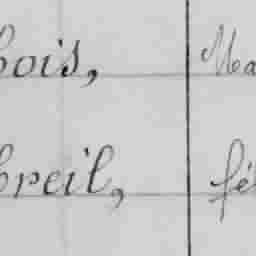 bois, Ma
breil, fé